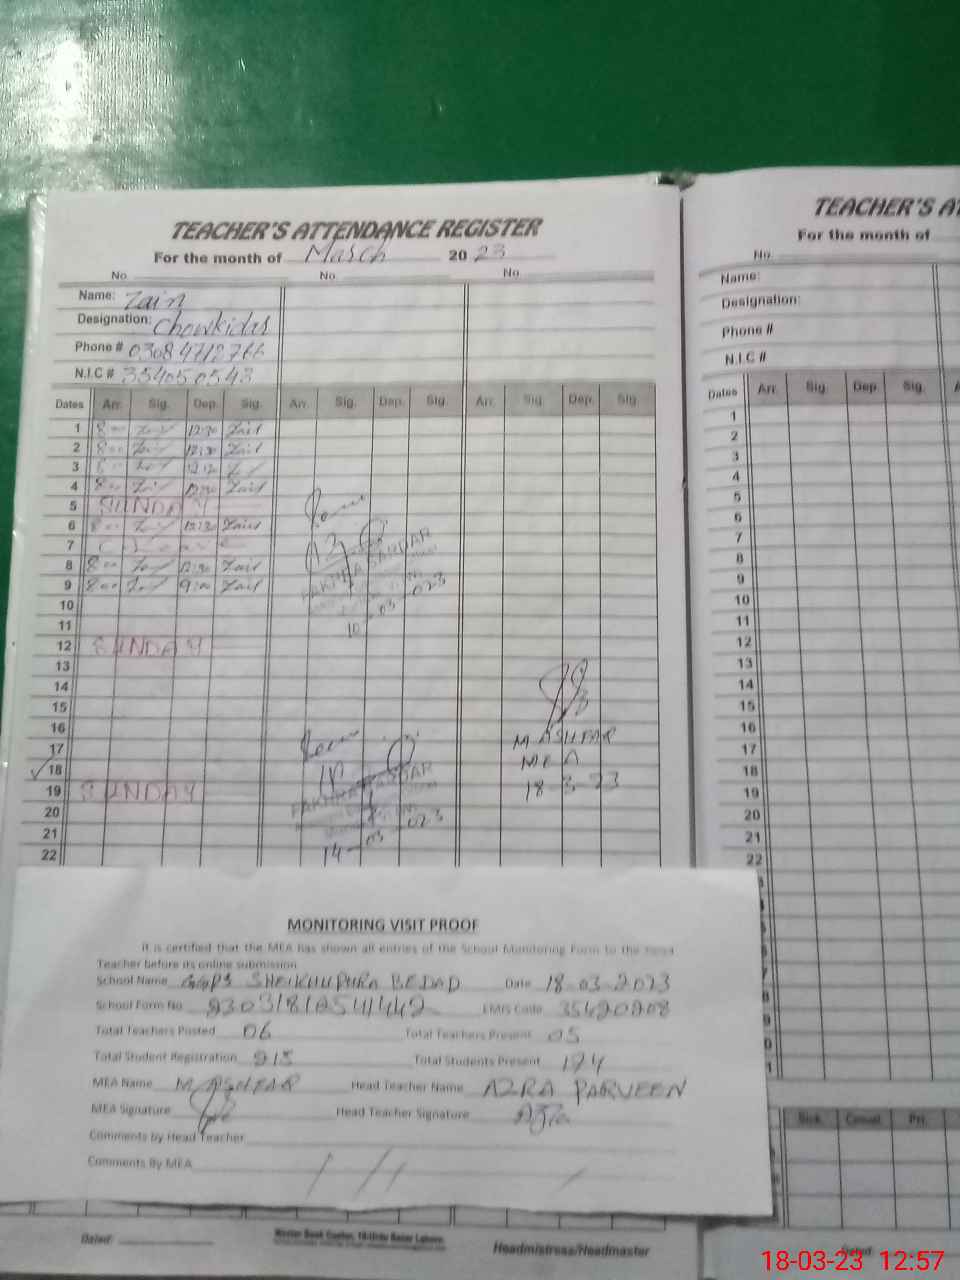 TEACHER'S ATTENDANCE REGISTER
For the month of March 2023
No. No. No.
Name: Zain
Designation: Chowkidar
Phone # 03084712766
N.I.C # 354050543
Dates Arr. Sig. Dep. Sig. Arr. Sig. Dep. Sig. Arr. Sig. Dep. Sig.
1 8:00 Zain 12:30 Zain
2 8:00 Zain 12:30 Zain
3 8:00 Zain 12:
4 8:00 Zain 12:30 Zain
5 SUNDAY
6 8:00 Zain 12:30 Zain
7 C Leave
8 8:00 Zain 12:30 Zain
9 8:00 Zain 9:00 Zain
10
11
12 SUNDAY
13
14
15
16
17
18
19 SUNDAY
20
21
22
FAKHRA SARDAR
10-03-023
FAKHRA SARDAR
14-03-023
M. ASHFAR
MEA
18-3-23
MONITORING VISIT PROOF
It is certified that the MEA has shown all entries of the School Monitoring Form to the Head
Teacher before its online submission
School Name GGPS SHEIKHUPURA BEDAD Date 18-03-2023
School Form No EMIS Code 35420208
Total Teachers Posted 06 Total Teachers Present 05
Total Student Registration 215 Total Students Present 174
MEA Name M. ASHFAR Head Teacher Name AZRA PARVEEN
MEA Signature Head Teacher Signature Azra
Comments by Head Teacher
Comments By MEA
Dated: Headmistress/Headmaster
TEACHER'S AT
For the month of
No.
Name:
Designation:
Phone #
N.I.C #
Dates Arr. Sig. Dep. Sig. A
1
2
3
4
5
6
7
8
9
10
11
12
13
14
15
16
17
18
19
20
21
22
Sick. Casual. Pri.
Dated:
18-03-23 12:57